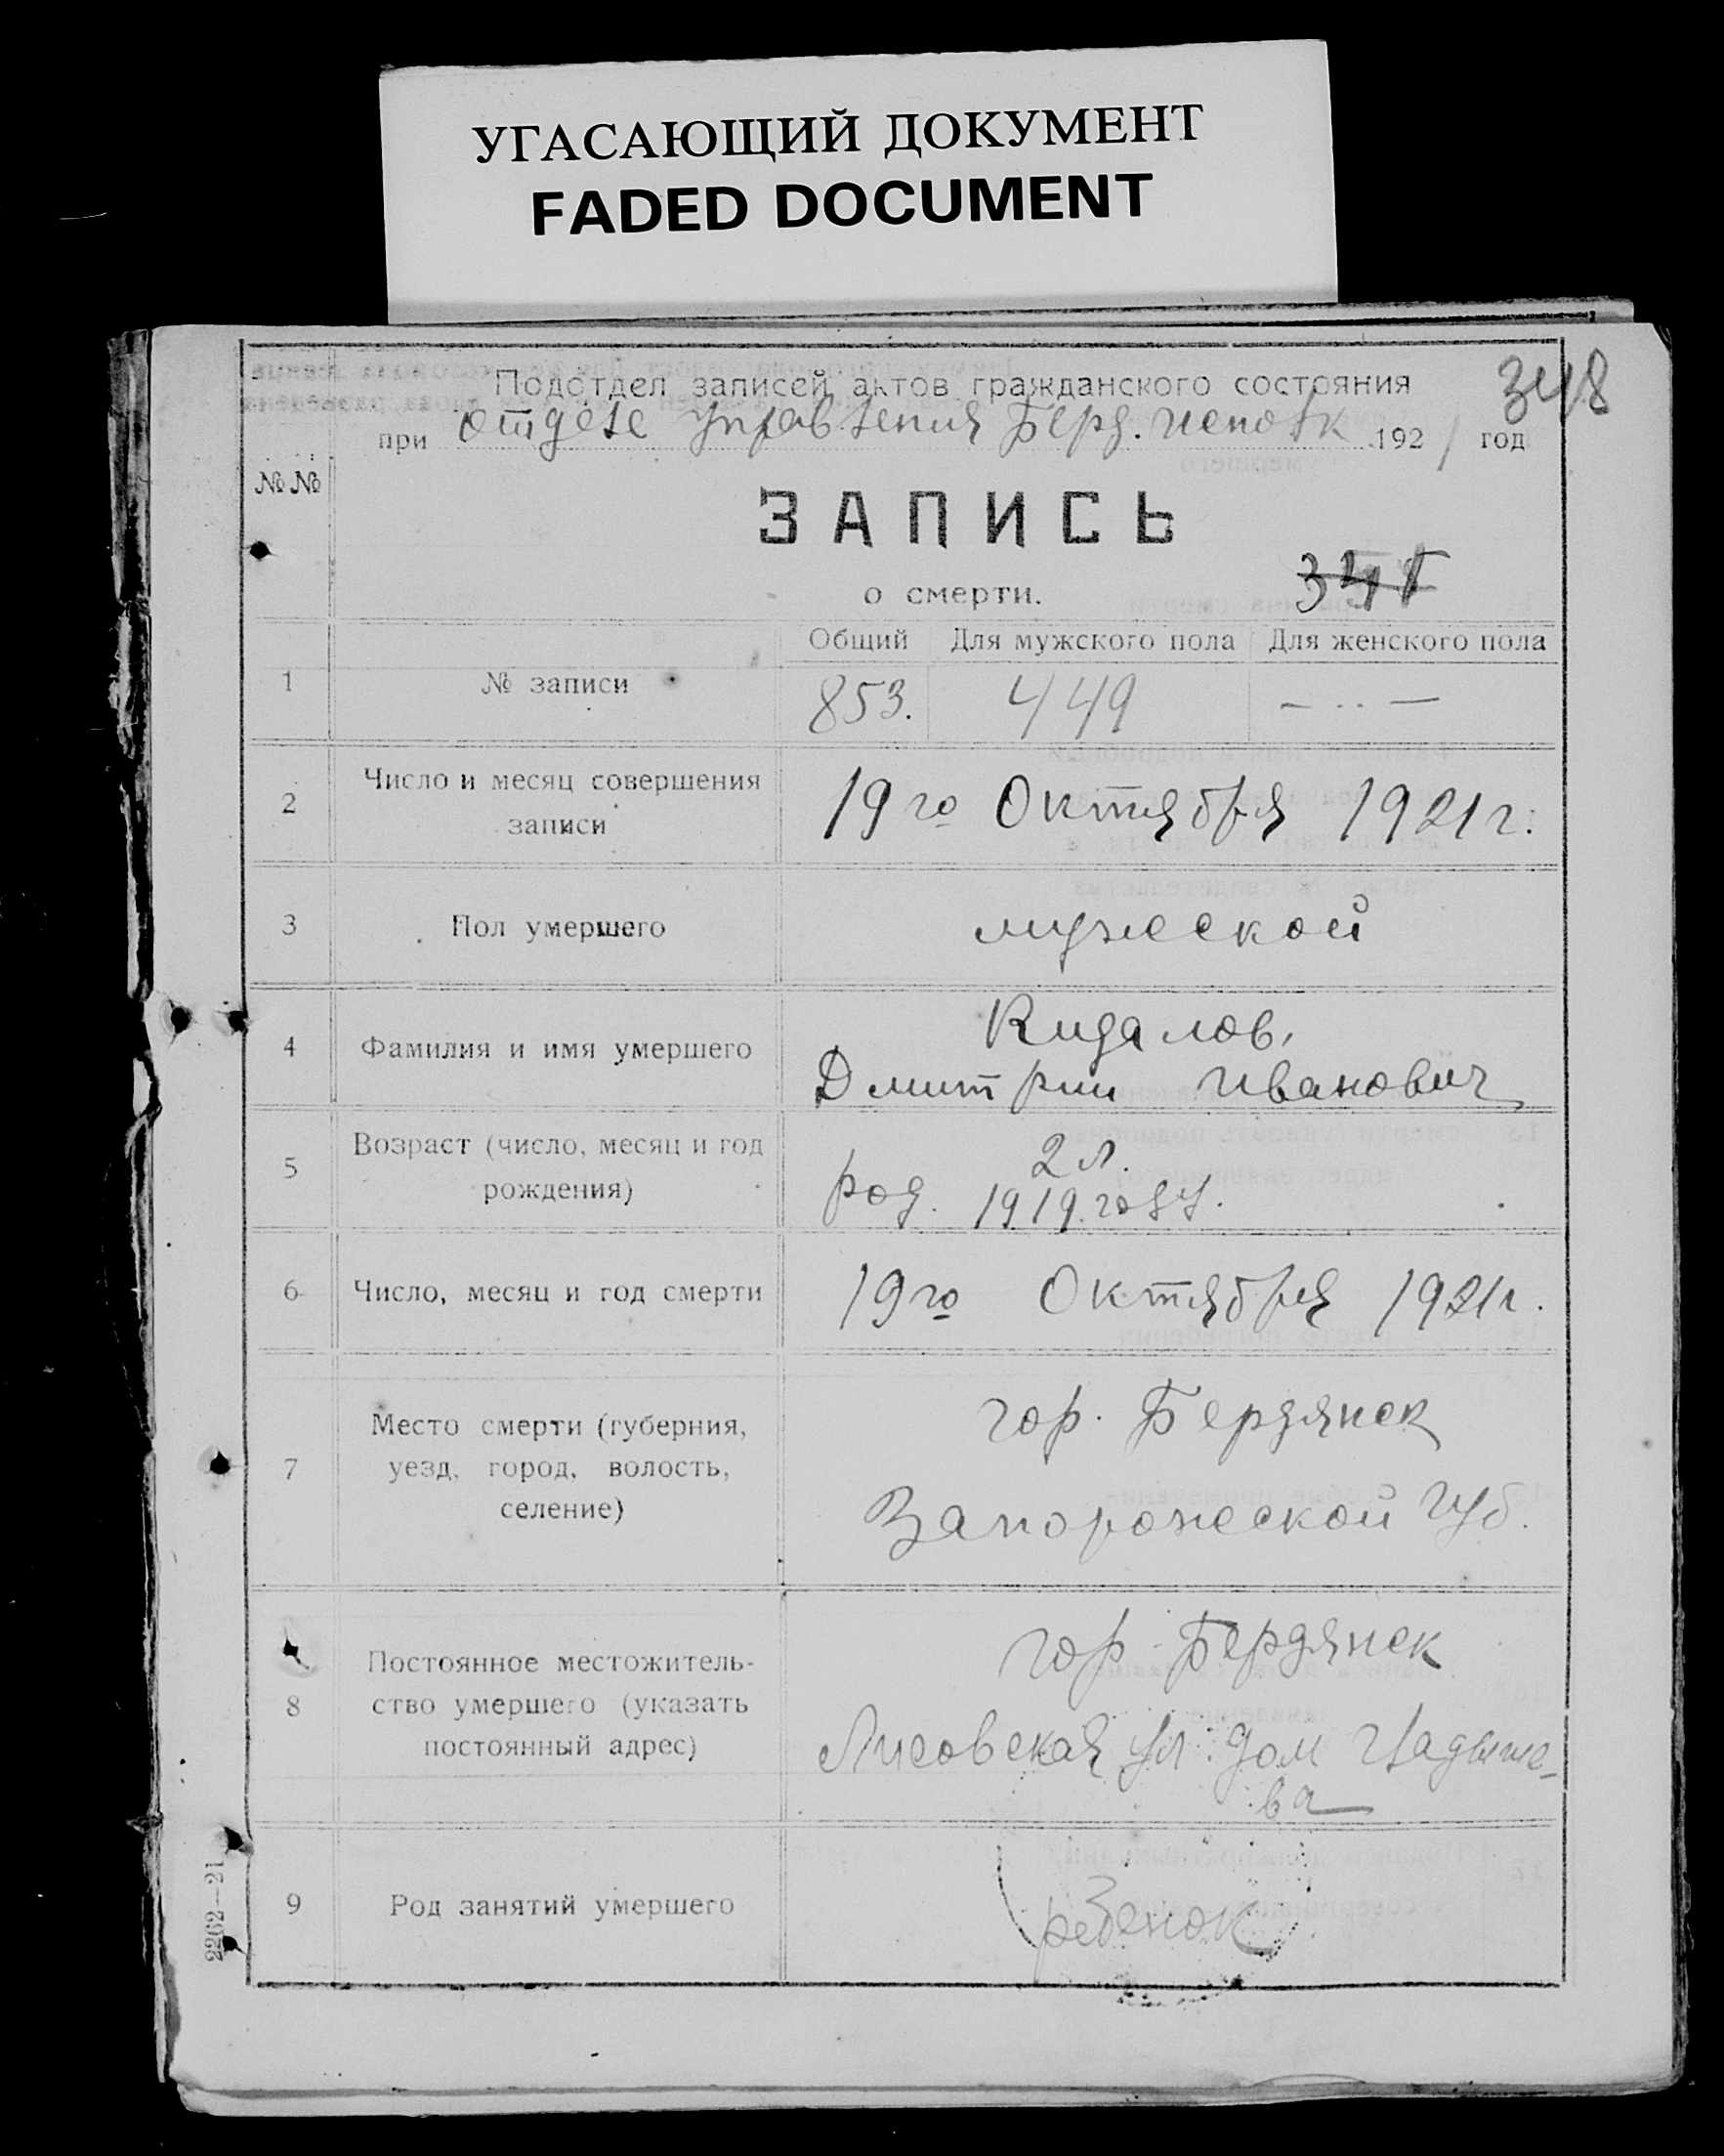 УГАСАЮЩИЙ ДОКУМЕНТ
FADED DOCUMENT
348
Подотдел записей актов гражданского состояния
при отделе управления Берд. исполк 1921 год
№№
ЗАПИСЬ
о смерти.
Общий Для мужского пола Для женского пола
1 № записи 853. 449 — .. —
2 Число и месяц совершения
записи
19го Октября 1921 г.
3 Пол умершего мужеской
4 Фамилия и имя умершего
Кидалов,
Дмитрии Иванович
5 Возраст (число, месяц и год
рождения)
2 л.
род. 1919. году.
6 Число, месяц и год смерти 19го Октября 1921г.
7 Место смерти (губерния,
уезд, город, волость,
селение)
гор. Бердянск
Запорожеской губ.
8 Постоянное местожитель-
ство умершего (указать
постоянный адрес)
гор. Бердянск
Лисовская ул. дом
ва
9 Род занятий умершего ребенок
2262—21